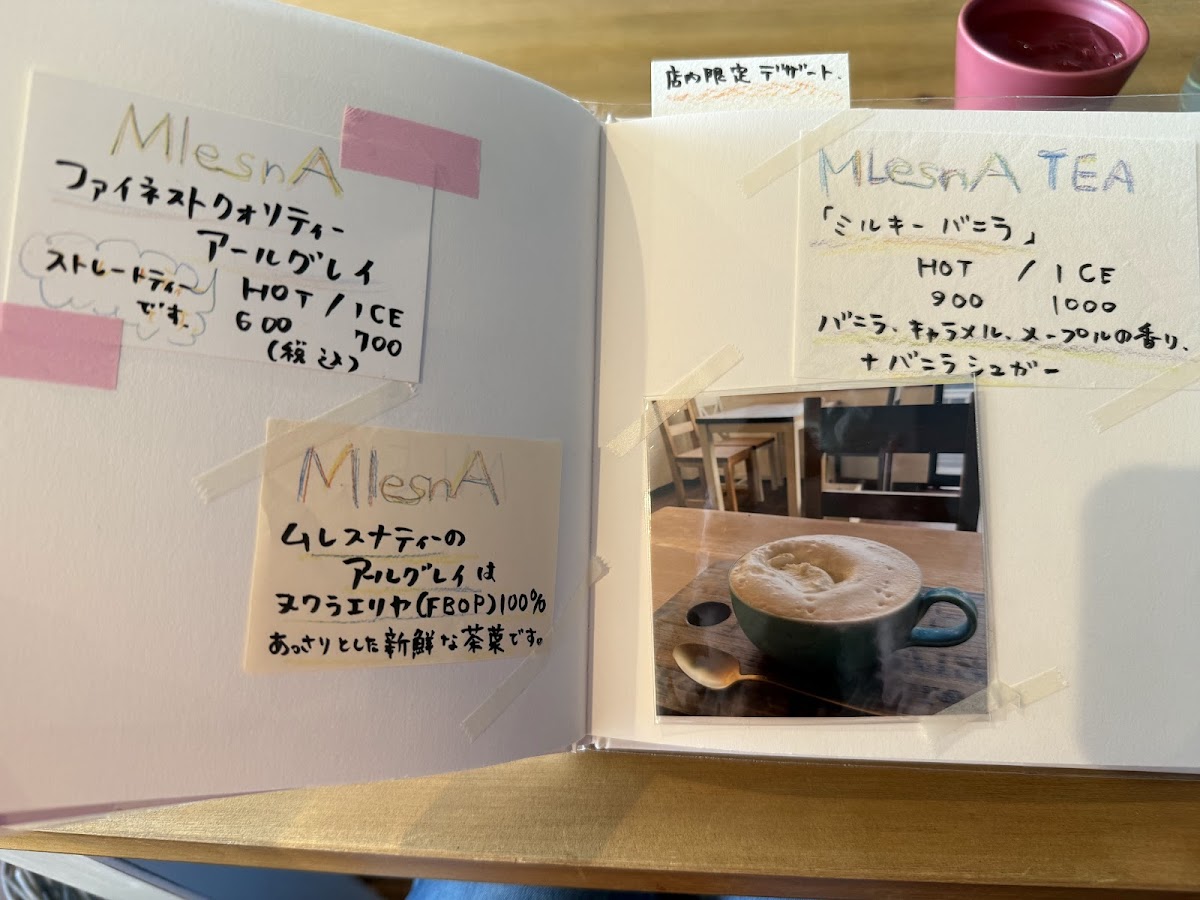 MlesnA
ファイネストクォリティー
アールグレイ
ストレートティー
です。
HOT / ICE
600 700
(税込)
MlesnA
ムレスナティーの
アールグレイは
ヌワラエリヤ(FBOP)100%
あっさりとした新鮮な茶葉です。
店内限定デザート.
MLesnA TEA
「ミルキー バニラ」
HOT / ICE
900 1000
バニラ、キャラメル、メープルの香り、
+バニラシュガー